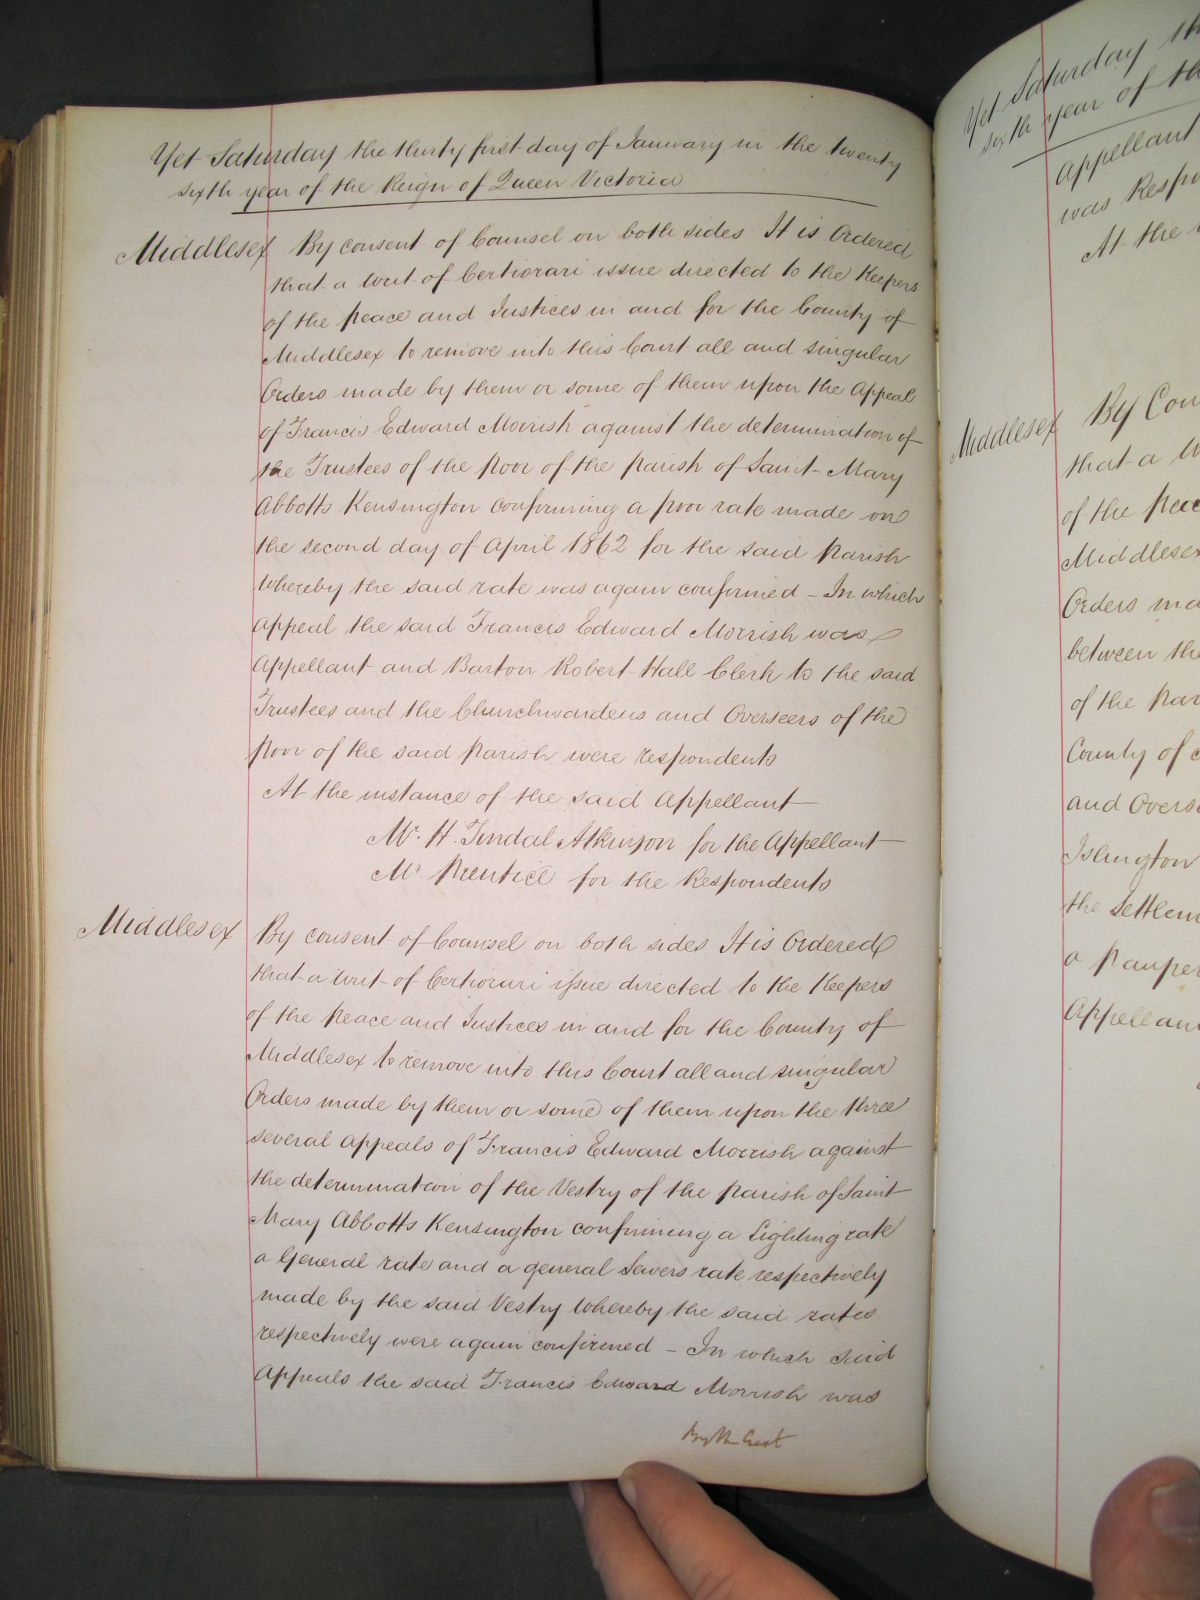 Yet Saturday the thirty first day of January in the twenty
sixth year of the Reign of Queen Victoria
Middlesex By consent of Counsel on both sides It is Ordered
that a writ of Certiorari issue directed to the Keepers
of the peace and Justices in and for the County of
Middlesex to remove into this Court all and singular
Orders made by them or some of them upon the Appeal
of Francis Edward Morrish against the determination of
the Trustees of the poor of the parish of Saint Mary
Abbotts Kensington confirming a poor rate made on
the second day of April 1862 for the said parish
Whereby the said rate was again confirmed - In which
appeal the said Francis Edward Morrish was
Appellant and Barton Robert Hall Clerk to the said
Trustees and the Churchwardens and Overseers of the
poor of the said parish were respondents
At the instance of the said Appellant
Mr. H. Tindal Atkinson for the Appellant
Mr Prentice for the Respondents
Middlesex By consent of Counsel on both sides It is Ordered
that a writ of Certiorari issue directed to the Keepers
of the peace and Justices in and for the County of
Middlesex to remove into this Court all and singular
Orders made by them or some of them upon the three
several appeals of Francis Edward Morrish against
the determination of the Vestry of the parish of Saint
Mary Abbotts Kensington confirming a Lighting rate
a General rate and a general Sewers rate respectively
made by the said Vestry Whereby the said rates
respectively were again confirmed - In which said
Appeals the said Francis Edward Morrish was
By the Court
Yet Saturday th
sixth year of th
Appellant
was Respo
At the
Middlesex By Con
that a w
of the peac
Middlesex
Orders ma
between the
of the par
County of
and Overs
Islington
the Settlem
a pauper
Appellan